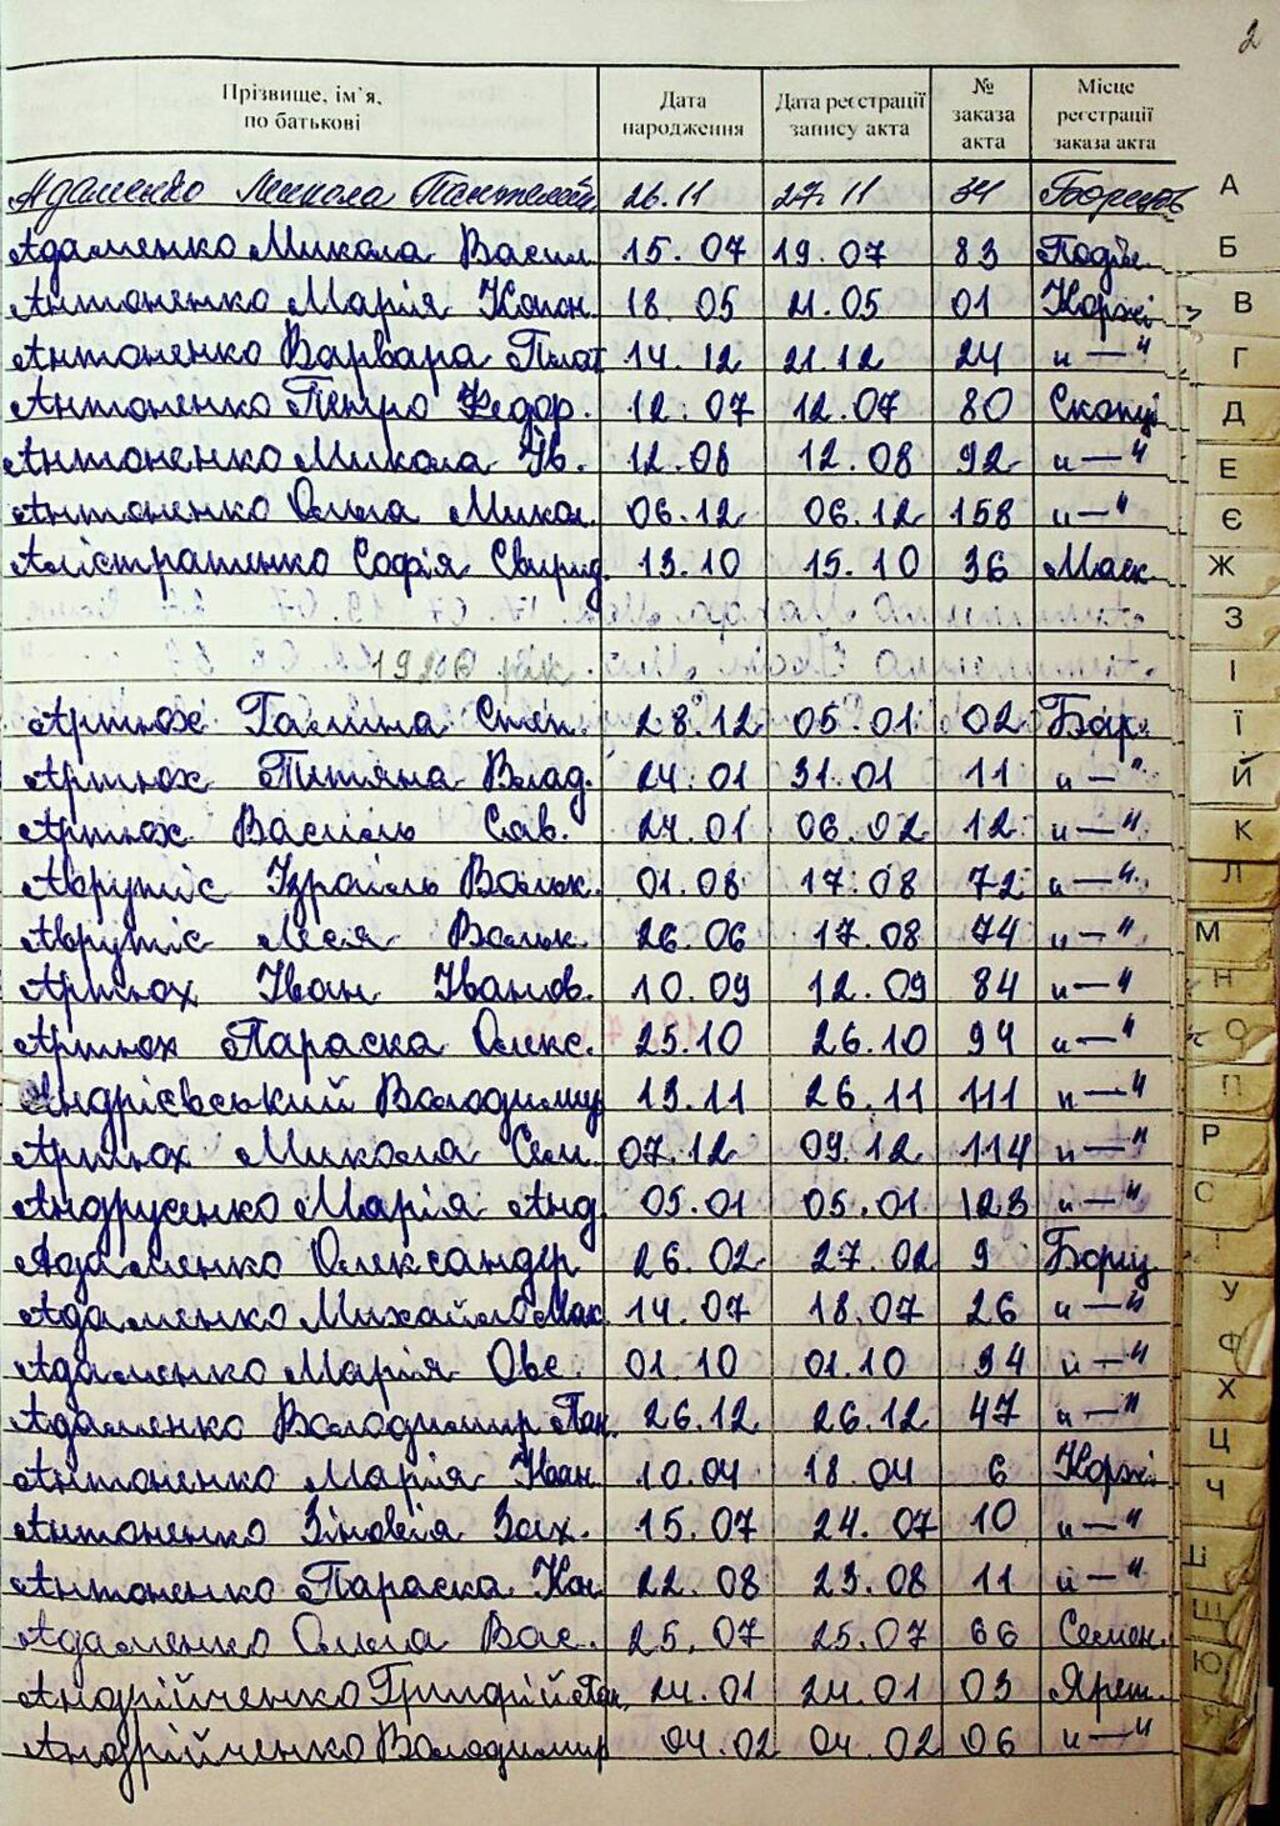 2
Прізвище, ім'я, по батькові Дата народження Дата реєстрації запису акта № заказа акта Місце реєстрації заказа акта
Адаменко Микола Пантелей 26.11 27.11 34 А
Адаменко Микола Васил. 15.07 19.07 83 Поділ. Б
Антоненко Марія Конон. 18.05 21.05 01 Коржі В
Антоненко Варвара Плат 14.12 21.12 24 и—и Г
Антоненко Петро Федор. 12.07 12.07 80 Скопці Д
Антоненко Микола Ів. 12.08 12.08 92 и—и Е
Антоненко Ольга Микол. 06.12 06.12 158 и—и Є
Алістратенко Софія Свирид. 13.10 15.10 36 Маск. Ж
З
рік І
Артюх Галина Степ. 28.12 05.01 02 Бар. Ї
Артюх Титяна Влад. 24.01 31.01 11 и—и Й
Артюх Василь Сав. 24.01 06.02 12 и—и К
Аврутіс Ізраїль Вольк. 01.08 17.08 72 и—и Л
Аврутіс Леся Вольк. 26.06 17.08 74 и—и М
Артюх Іван Іванов. 10.09 12.09 84 и—и Н
Артюх Параска Олекс. 25.10 26.10 94 и—и О
Андрієвський Володимир 13.11 26.11 111 и—и П
Артюх Микола Сем. 07.12 09.12 114 и—и Р
Андрусенко Марія Анд. 05.01 05.01 123 и—и С
Адаменко Олександер 26.02 27.02 9 Борщ.
Адаменко Михайло Мак. 14.07 18.07 26 и—и У
Адаменко Марія Овс. 01.10 01.10 34 и—и Ф
Адаменко Володимир Пан. 26.12 26.12 47 и—и Х
Антоненко Марія Іван. 10.04 18.04 6 Коржі Ц
Антоненко Зіновія Зах. 15.07 24.07 10 и—и Ч
Антоненко Параска Кон. 22.08 23.08 11 и—и Ш
Адаменко Ольга Вас. 25.07 25.07 66 Семен. Щ
Андрійченко Григорій Пан. 24.01 24.01 03 Яреш. Ю
Андрійченко Володимир 04.02 04.02 06 и—и Я